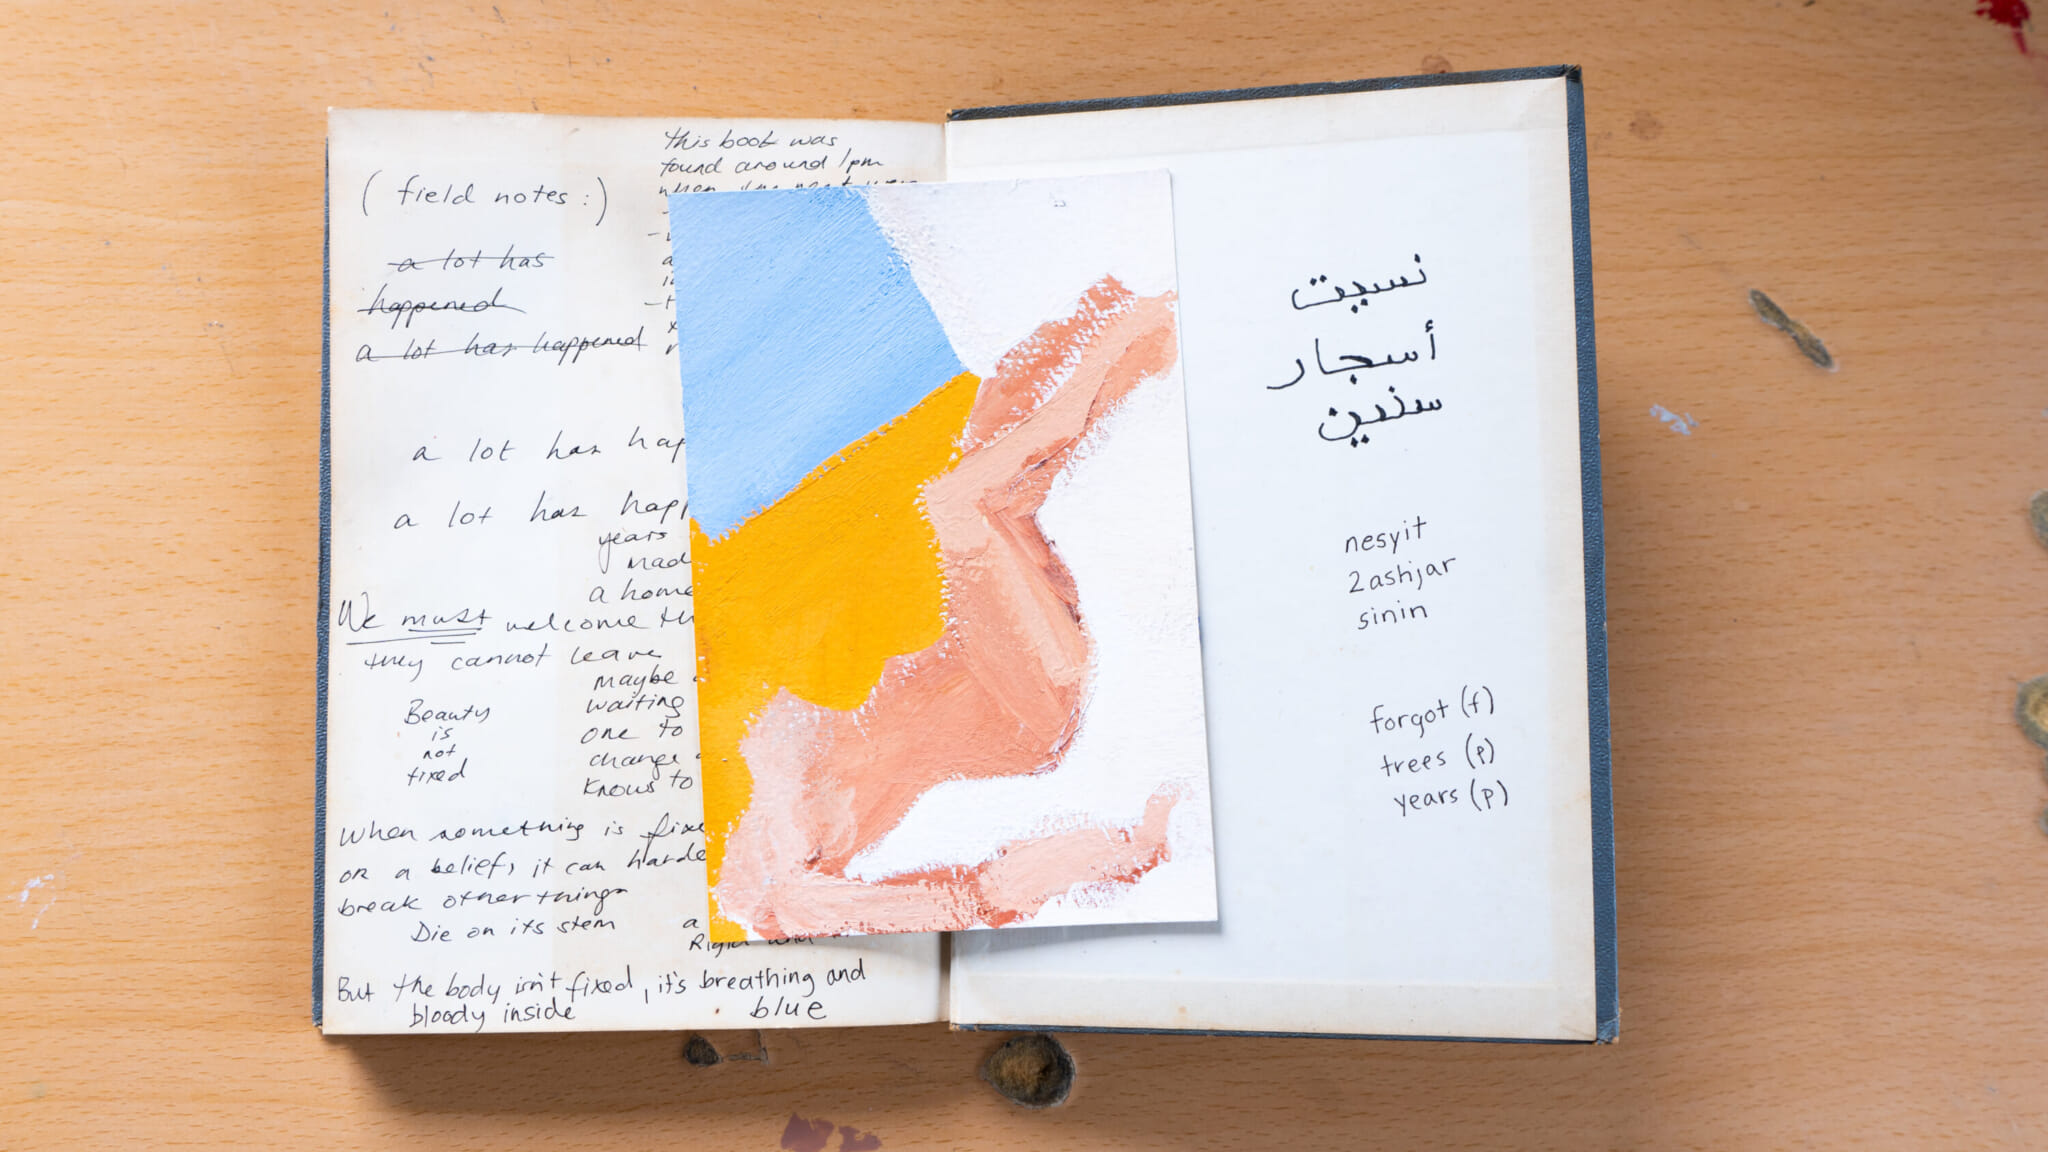 this book was
found around 1pm
(field notes:)
a lot has
happened
a lot has happened
a lot has hap
a lot has happ
years
mad
a home
We must welcome th
they cannot leave
maybe
waiting
one to
change
knows to
Beauty
is
not
fixed
when something is fixe
or a belief, it can harde
break other things
Die on its stem
a
But the body isn't fixed, it's breathing and
bloody inside
blue
نسيت
أسجار
سنين
nesyit
2ashjar
sinin
forgot (f)
trees (p)
years (p)